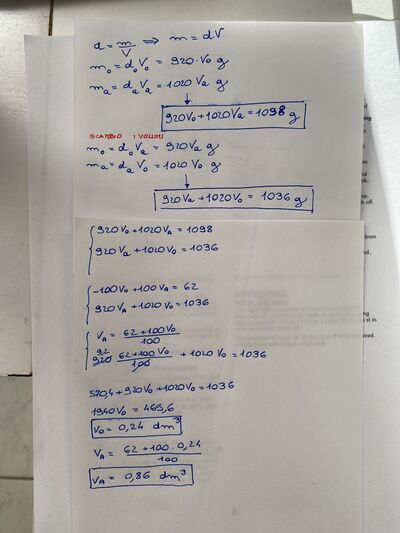 d = m/V ⇒ m = dV
m₀ = d₀V₀ = 920·V₀ g
mₐ = dₐVₐ = 1020Vₐ g
920V₀+1020Vₐ = 1098 g
SCAMBIO I VOLUMI
m₀ = d₀Vₐ = 920Vₐ g
mₐ = dₐV₀ = 1020V₀ g
920Vₐ+1020V₀ = 1036 g
920V₀+1020Vₐ = 1098
920Vₐ+1020V₀ = 1036
-100V₀+100Vₐ = 62
920Vₐ+1020V₀ = 1036
Vₐ = 62+100V₀/100
920 62+100V₀/100 + 1020V₀ = 1036
570,4+920V₀+1020V₀ = 1036
1940V₀ = 465,6
V₀ = 0,24 dm³
Vₐ = 62+100·0,24/100
Vₐ = 0,86 dm³